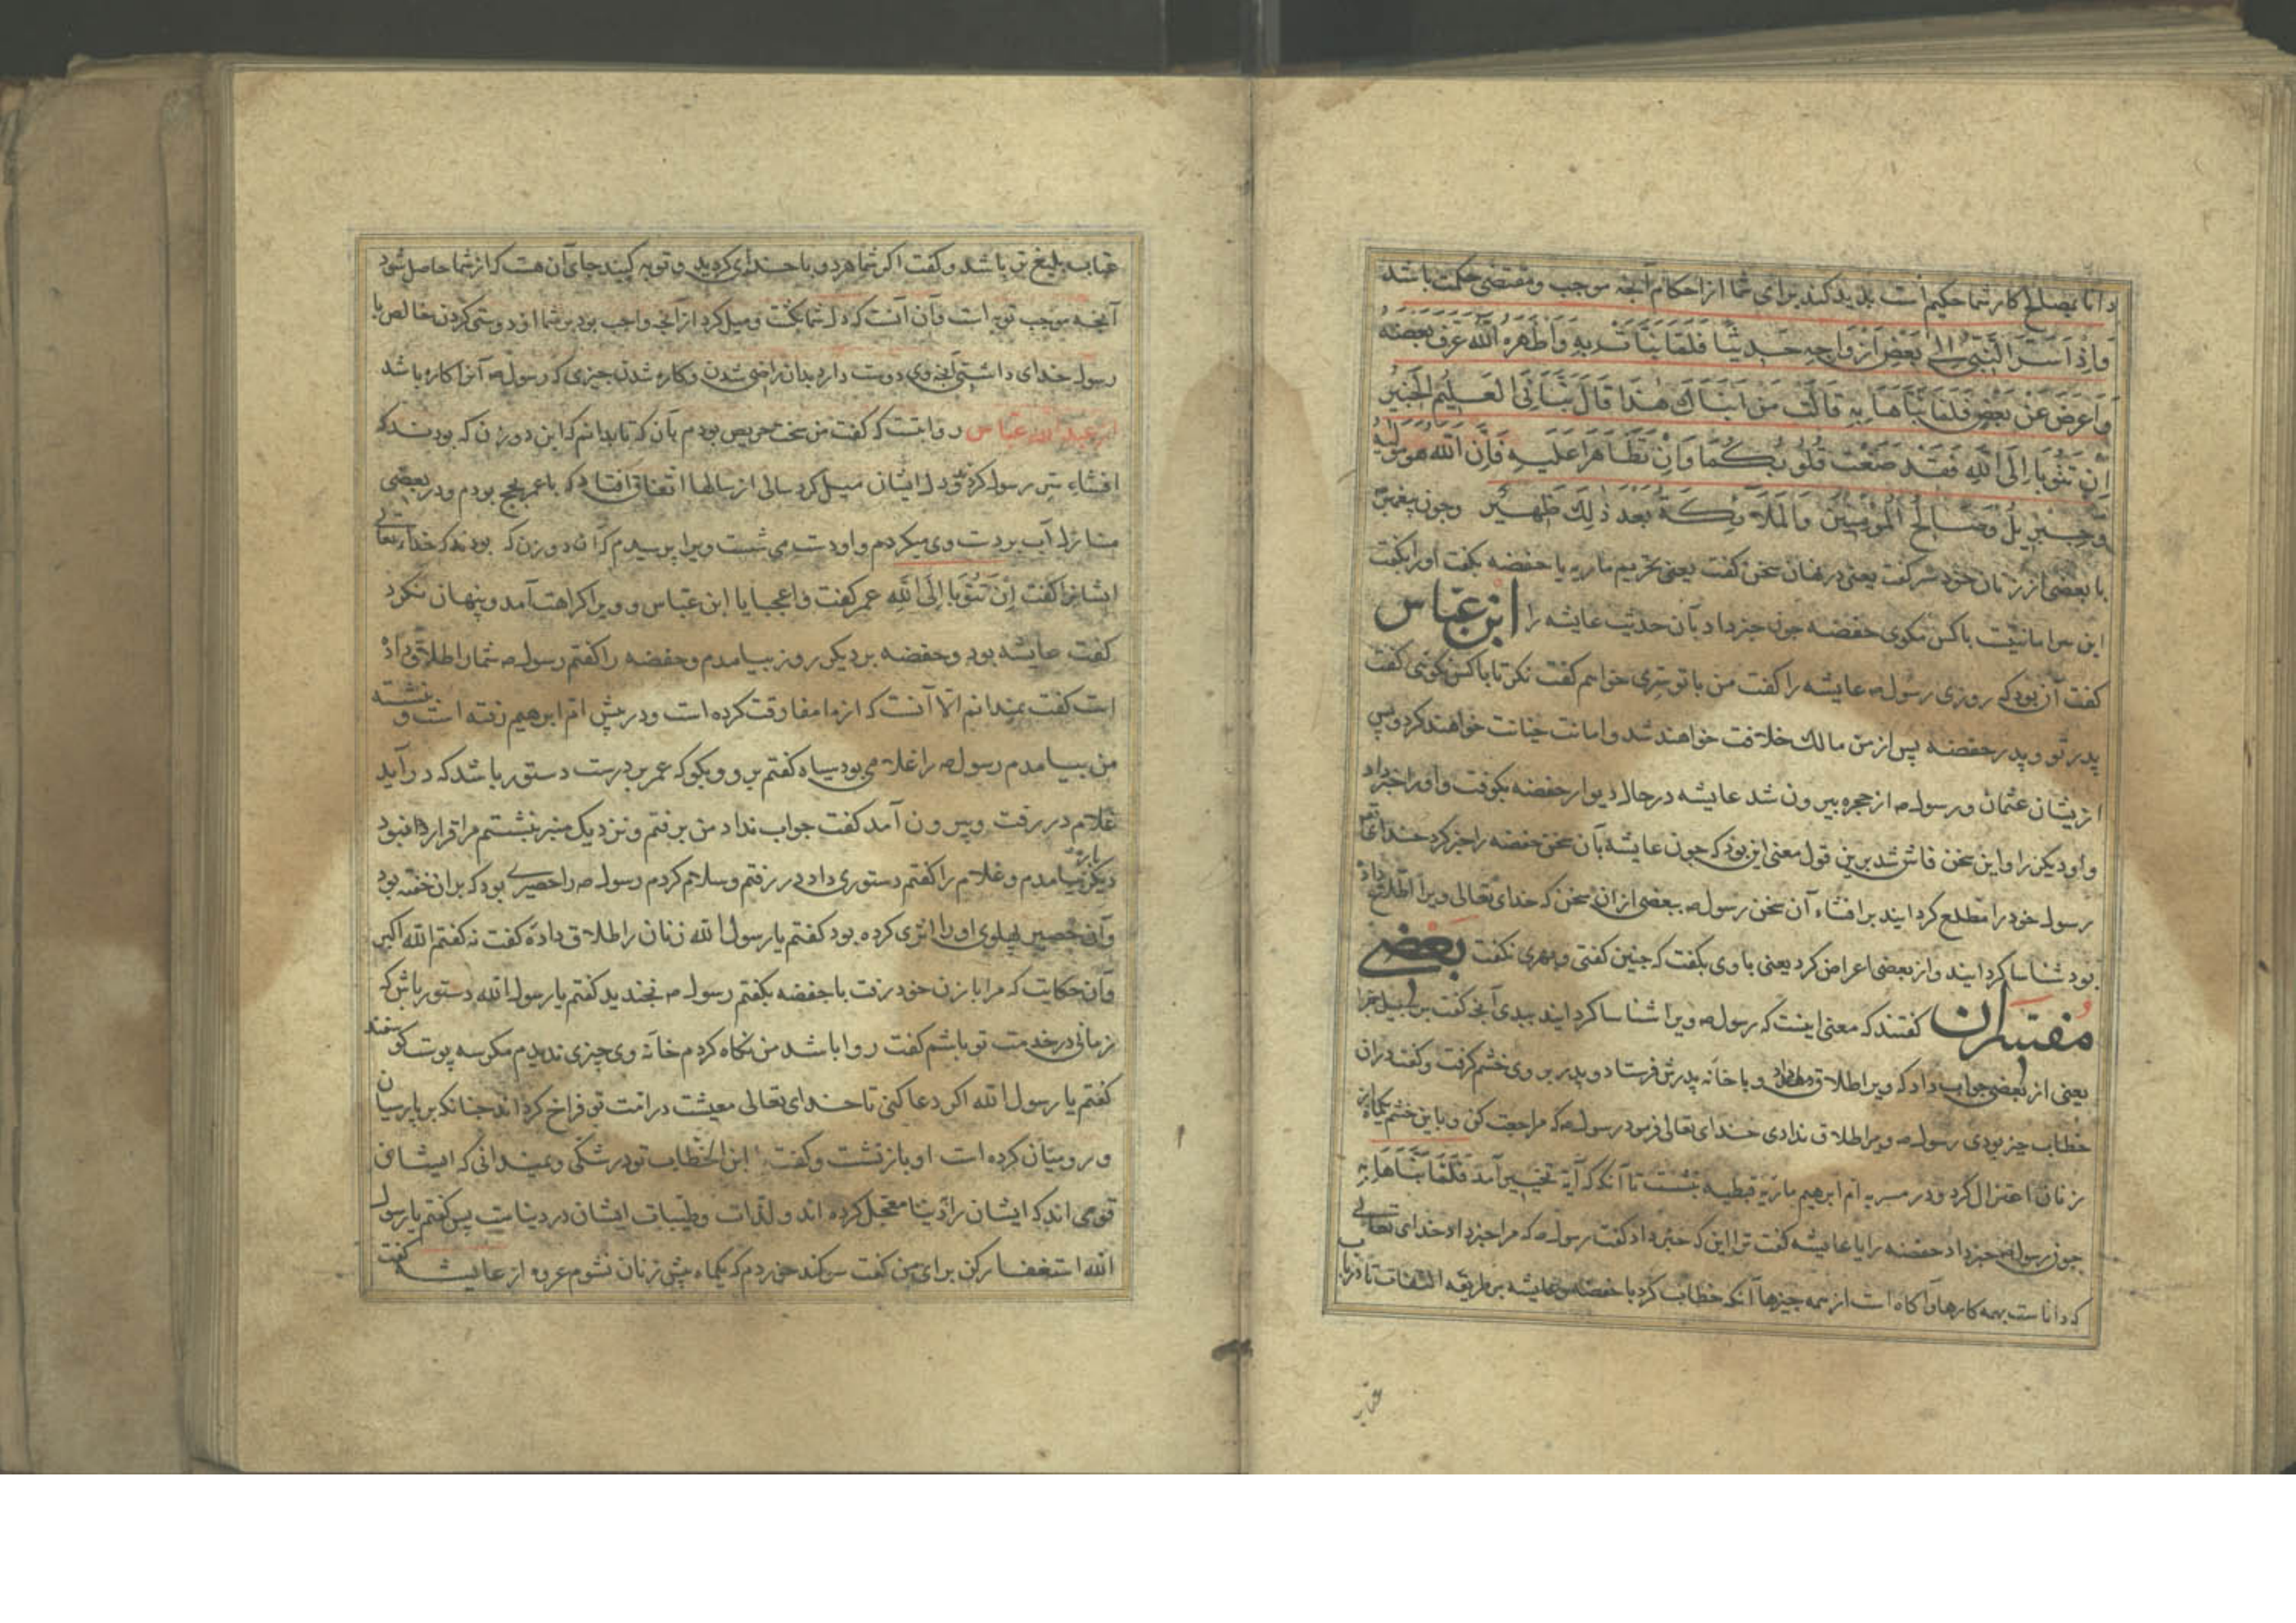 دانا بمصالح کار شما حکیم است بدید کند برای شما از احکام آنجه موجب و مقتضی حکمت باشد
وَاِذْ اَسَرَّ النَّبِیُّ اِلٰی بَعْضِ اَزْوَاجِهِ حَدِیثًا فَلَمَّا نَبَّاَتْ بِهِ وَاَظْهَرَهُ اللّٰهُ عَرَّفَ بَعْضَهُ
وَاَعْرَضَ عَنْ بَعْضٍ فَلَمَّا نَبَّاَهَا بِهِ قَالَتْ مَنْ اَنْبَاَكَ هٰذَا قَالَ نَبَّاَنِیَ الْعَلِیمُ الْخَبِیرُ
اِنْ تَتُوبَا اِلَی اللّٰهِ فَقَدْ صَغَتْ قُلُوبُكُمَا وَاِنْ تَظَاهَرَا عَلَیْهِ فَاِنَّ اللّٰهَ هُوَ مَوْلٰیهُ
وَجِبْرِیلُ وَصَالِحُ الْمُؤْمِنِینَ وَالْمَلَآئِکَةُ بَعْدَ ذٰلِكَ ظَهِیرٌ وجون پیغمبر
با بعضی از زنان خود سر گفت یعنی در نهان سخن گفت یعنی تحریم ماریه با حفضه بگفت اورا بگفت
این سر امانتست با کس نکوی حفضه جون خبر داد بآن حدیث عایشه را ابن عباس
گفت آن بود که روزی رسول ص عایشه را گفت من با تو سری خواهم گفت نکر تا با کس نکوئی گفت
پدر تو و پدر حفضه پس از من مالك خلافت خواهند شد و امانت خیانت خواهند کرد و پس
ازیشان عثمان و رسول ص از حجره بیرون شد عایشه در حال دیوار حفضه بکوفت و اورا خبر داد
و او دیکر را و این سخن فاش شد برین قول معنی این بود که جون عایشه بآن سخن حفضه را خبر کرد خدای تع
رسول خود را مطلع کردانید بر افشاء آن سخن رسول ص ببعضی از ان سخن که خدای تعالی ویرا اطلاع داد
بود شناسا کردانید و از بعضی اعراض کرد یعنی با وی بگفت که جنین گفتی و بهری نکفت بعضی
مفسران گفتند که معنی اینست که رسول ص ویرا شناسا کردانید ببدی آنجه گفت بر سبیل جزا
یعنی از بعضی جواب داد که ویرا طلاق داد و با خانه پدرش فرستاد و پدر بر وی خشم گرفت و گفت در ان
خطاب خیر بودی رسول ص ویرا طلاق ندادی خدای تعالی فرمود رسول ص که مراجعت کن و باین خشم یکماه از
زنان اعتزال کرد و در مسربه ام ابرهیم ماریه قبطیه بنشست تا آنکه که آیة تخییر آمد فَلَمَّا نَبَّاَهَا بِهِ
جون رسول ص خبر داد حفضه را یا عایشه گفت ترا این که خبر داد گفت رسول ص که مرا خبر داد خدای تعالی
که داناست بهمه کارها و آکاه است از همه جیزها آنکه خطاب کرد با حفضه و عایشه بر طریقه التفات تا در باب
عتاب
عتاب بلیغ تر باشد و گفت اکر شما هر دو با خدای کردید و توبه کنید جای آن هست که از شما حاصل شود
آنجه موجب توبه است و آن آنست که دل شما بکشت و میل کرد از آنجه واجب بود بر شما از دوستی کردن خالص با
رسول خدای داشتن آنجه وی دوست دارد بدان راضی شدن و کاره شدن جیزی که رسول ص آنرا کاره باشد
از عبد الله عباس روایتست که گفت من سخت حریص بودم بآن که تا بدانم که این دو زن که بودند که
افشاء سر رسول کردند و دل ایشان میل کرد سالی از سالها اتفاق افتاد که با عمر بحج بودم و در بعضی
منازل آب بر دست وی میکردم و او دست می شست ویرا پرسیدم که آن دو زن که بودند که خدای تعالی
ایشانرا گفت اِنْ تَتُوبَا اِلَی اللّٰهِ عمر گفت واعجبا یا ابن عباس و ویرا کراهت آمد و پنهان نکرد
گفت عایشه بود و حفضه بر دیکر روز بیامدم و حفضه را گفتم رسول ص شما را طلاق داده
است گفت نمیدانم الا آنست که از ما مفارقت کرده است و در پیش ام ابرهیم رفته است و نشسته
من بیامدم رسول ص را غلامی بود سیاه گفتم برو و بکو که عمر بر درست دستور باشد که در آید
غلام در رفت و بیرون آمد گفت جواب نداد من برفتم و نزدیک منبر بنشستم مرا قرار نبود
دیکر باره بیامدم و غلام را گفتم دستوری داد در رفتم و سلام کردم رسول ص را حصیری بود که بران خفته بود
و آن حصیر پهلوی او را اثری کرده بود گفتم یا رسول الله زنان را طلاق داده گفت نه گفتم الله اکبر
و آن حکایت که مرا با زن خود رفت با حفضه بگفتم رسول ص بخندید گفتم یا رسول الله دستور باش که
زمانی در خدمت تو باشم گفت روا باشد من نگاه کردم خانه وی جیزی ندیدم مکر سه پوست کوسفند
گفتم یا رسول الله اکر دعا کنی تا خدای تعالی معیشت در امت تو فراخ کرداند جنانکه بر پارسیان
و رومیان کرده است او باز نشست و گفت یا ابن الخطاب تو در شکی و نمیدانی که ایشان
قومی اند که ایشان را دنیا معجل کرده اند و لذات و طیبات ایشان در دنیاست پس گفتم یا رسول
الله استغفار کن برای من گفت سوکند خوردم که یکماه پیش زنان نشوم عروه از عایشه گفت